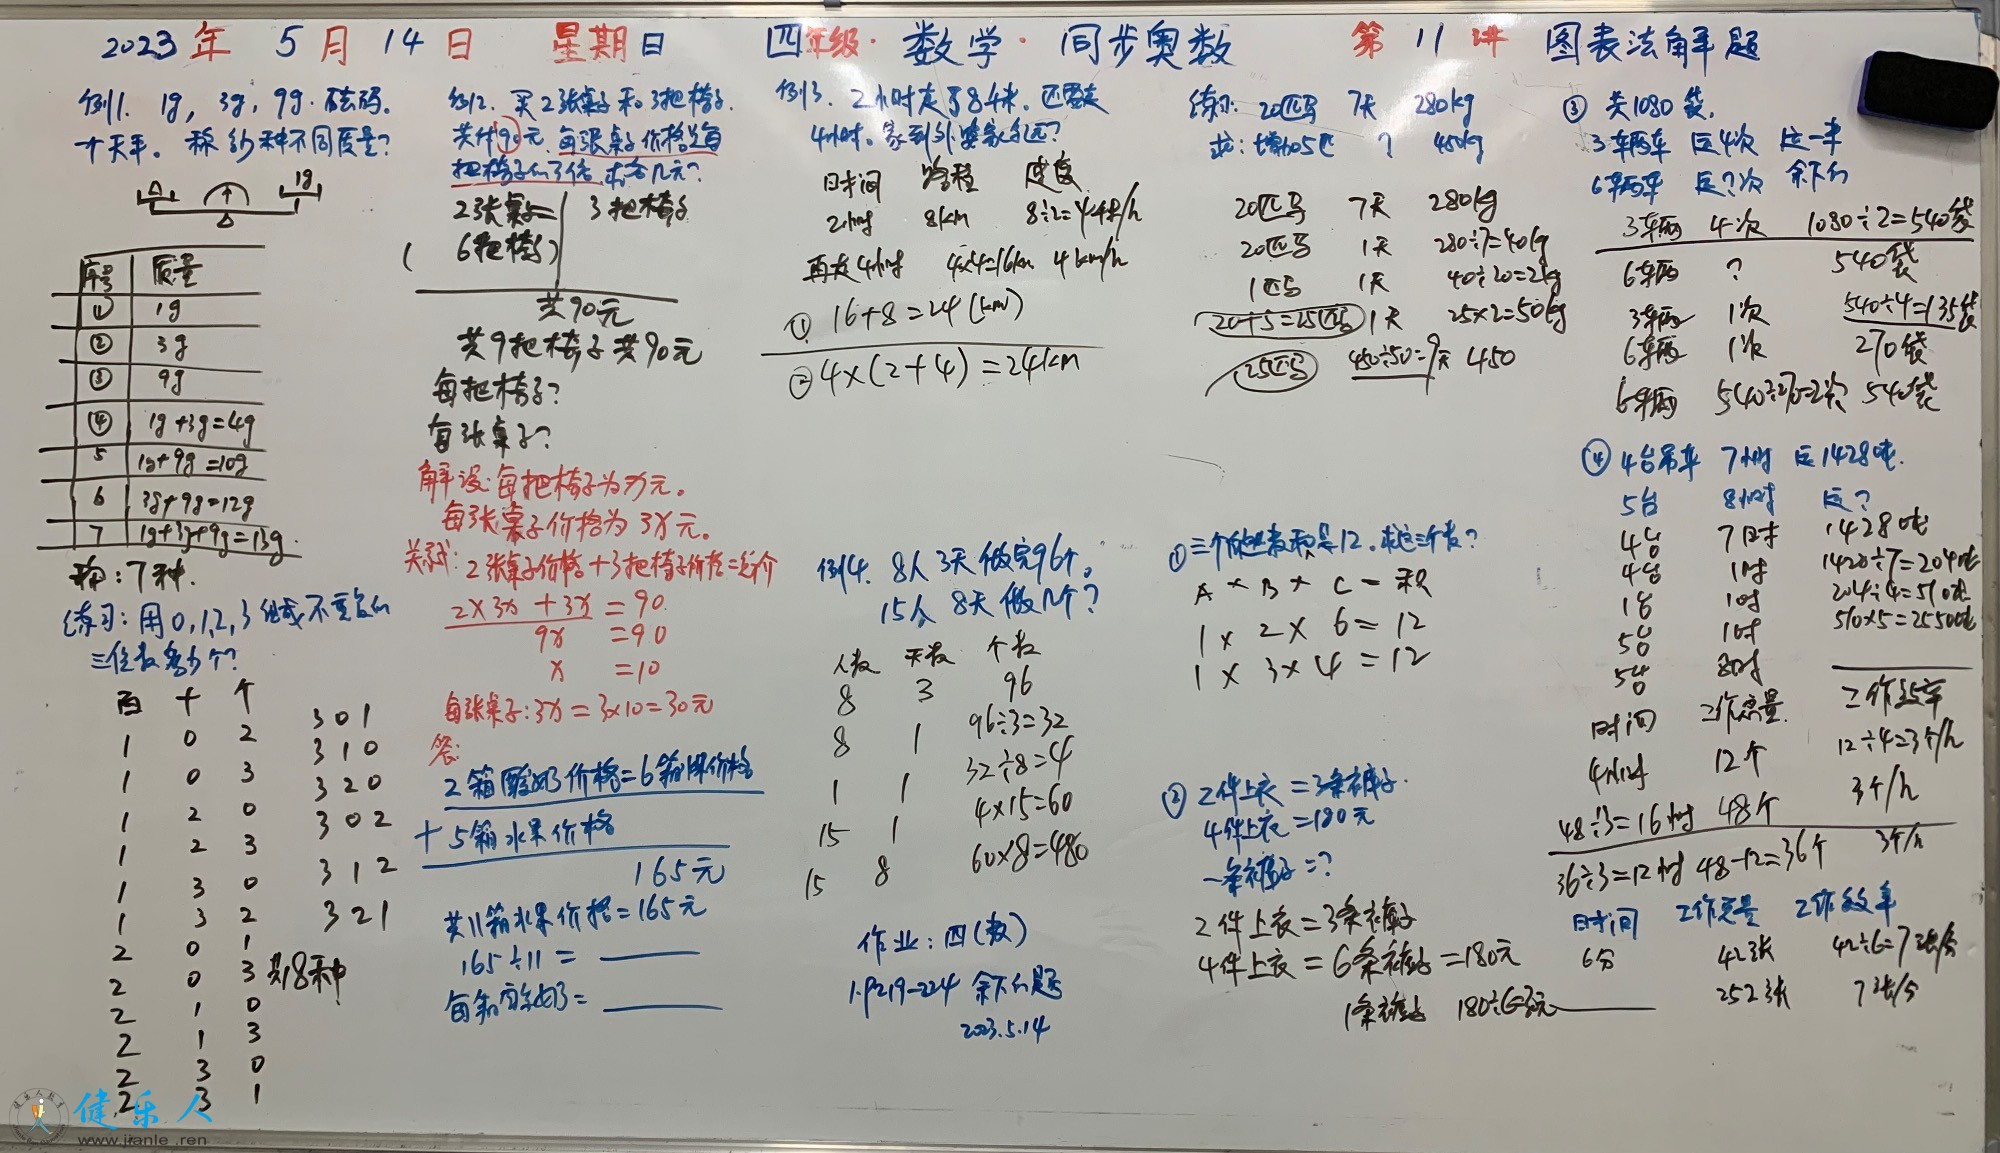 2023年 5月14日 星期日 四年级·数学·同步奥数 第11讲 图表法解题
例1. 1g, 3g, 9g. 砝码.
十天平。称多少种不同质量?
1g
序号 质量
① 1g
② 3g
③ 9g
④ 1g+3g=4g
5 1g+9g=10g
6 3g+9g=12g
7 1g+3g+9g=13g.
称:7种.
练习:用0,1,2,3组成不重复的
三位数多少个?
百 十 个
1 0 2
1 0 3
1 2 0
1 2 3
1 3 0
1 3 2
2 0 1
2 0 3
2 1 0
2 1 3
2 3 0
2 3 1
301
310
320
302
312
321
共18种
例2. 买2张桌子和3把椅子.
共付90元,每张桌子价格是每
把椅子的3倍.求各几元?
2张桌子= 3把椅子
(6把椅子)
共90元
共9把椅子 共90元
每把椅子?
每张桌子?
解设:每把椅子为x元。
每张桌子价格为3x元。
关系式:2张桌子价格+3把椅子价格=总价
2×3x+3x=90
9x=90
x=10
每张桌子:3x=3×10=30元
答:
2箱酸奶价格=6箱水果价格
+5箱水果价格
165元
共11箱水果价格=165元
165÷11=
每箱酸奶=
例3. 2小时走了8千米.还要走
4小时。家到外婆家多远?
时间 路程 速度
2小时 8km 8÷2=4千米/h
再走4小时 4×4=16km 4km/h
① 16+8=24(km)
② 4×(2+4)=24km
例4. 8人3天做完96个。
15人 8天做几个?
人数 天数 个数
8 3 96
8 1 96÷3=32
1 1 32÷8=4
15 1 4×15=60
15 8 60×8=480
作业:四(数)
1.P219-224 余下的题
2023.5.14
练习: 20匹马 7天 280kg
求:增加5匹 ? 450kg
20匹马 7天 280kg
20匹马 1天 280÷7=40kg
1匹马 1天 40÷20=2kg
20+5=25匹马 1天 25×2=50kg
25匹马 450÷50=9天 450
① 三个自然数积是12。求这三个数?
A×B×C=积
1×2×6=12
1×3×4=12
② 2件上衣=3条裤子.
4件上衣=180元
一条裤子=?
2件上衣=3条裤子
4件上衣=6条裤子=180元
1条裤子 180÷6=30元
③ 共1080袋.
3辆车 运4次 运一半
6辆车 运?次 余下的
3车辆 4次 1080÷2=540袋
6车辆 ? 540袋
3车辆 1次 540÷4=135袋
6车辆 1次 270袋
6车辆 540÷270=2次 540袋
④ 4台吊车 7小时 运1428吨.
5台 8小时 运?
4台 7时 1428吨
4台 1时 1428÷7=204吨
1台 1时 204÷4=51吨
5台 1时 510×5=2550吨
5台 8时
时间 工作总量 工作效率
4小时 12个 12÷4=3个/h
48÷3=16小时 48个 3个/h
36÷3=12小时 48-12=36个 3个/h
时间 工作总量 工作效率
6分 42张 42÷6=7张/分
252张 7张/分
健乐人
www.jianle.ren